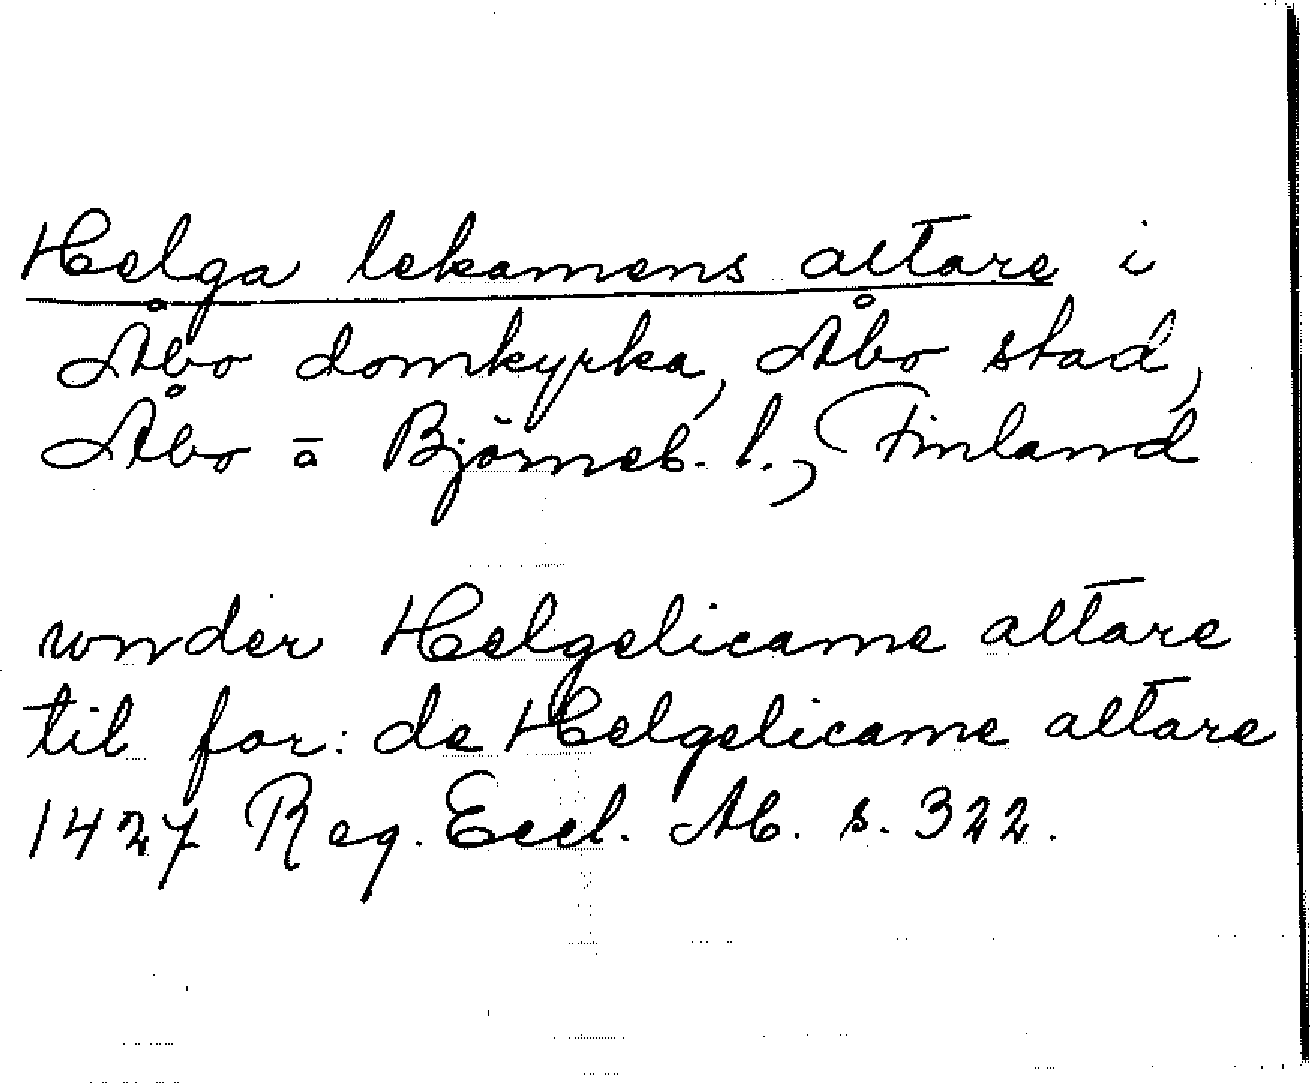 Helga lekamens altare i
Åbo domkyrka, Åbo stad,
Åbo o Björneb. l., Finland
wnder Helgelicame altare
til for: de Helgelicame altare
1427 Reg. Eccl. Ab. s. 322.